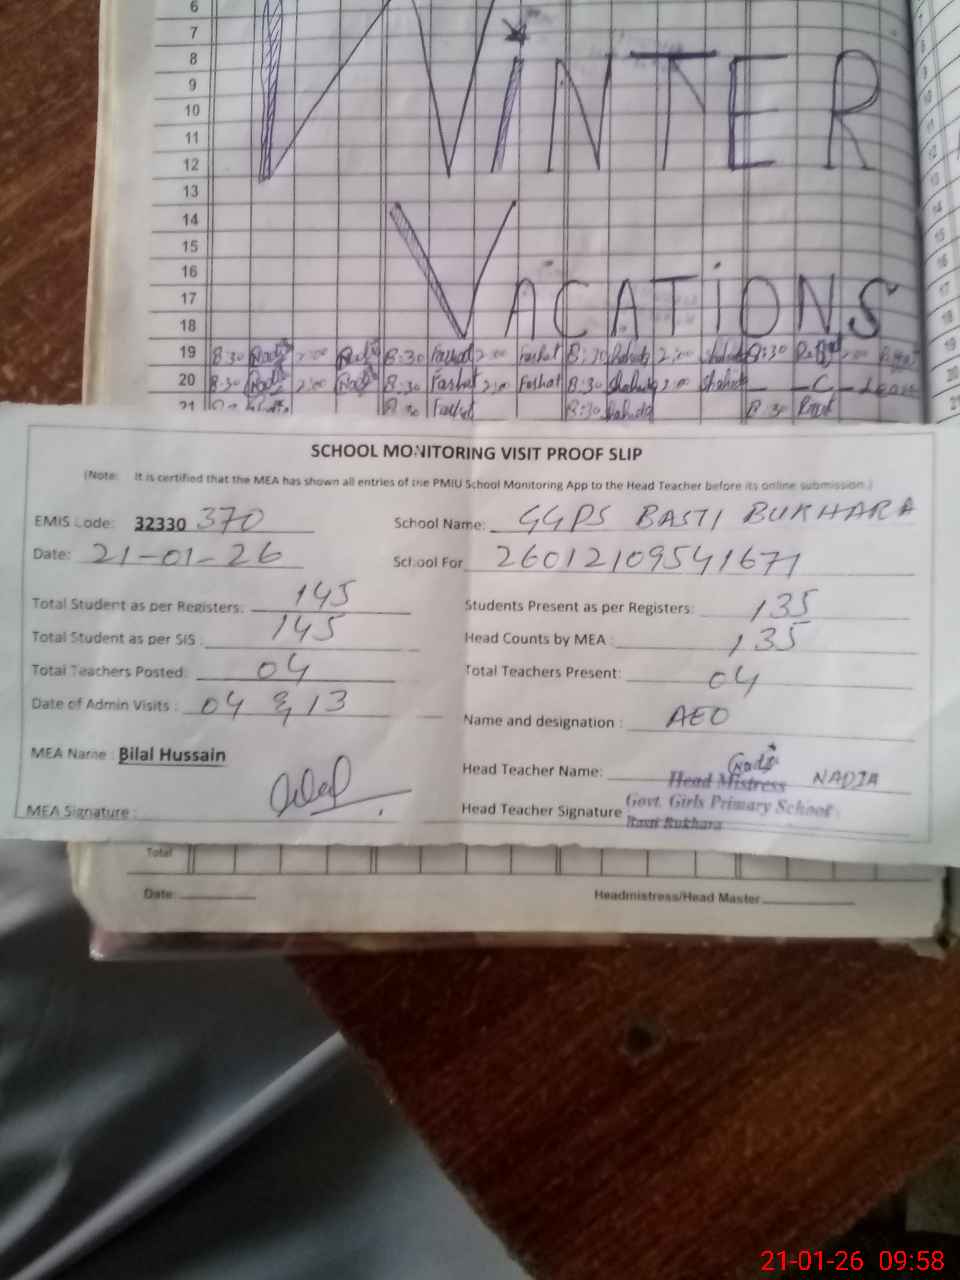 6
7
8
9
10
11
12
WINTER
13
14
15
16
17
18
VACATIONS
19 8:30 2:00 8:30 Farhat 2:00 Farhat 8:30 2:00 8:30
20 8:30 2:00 8:30 Farhat 2:00 Farhat 8:30 Shahida 2:00 Shahida - C - Leave
21 8:30 Farhat 8:30 Shahida 8:30
SCHOOL MONITORING VISIT PROOF SLIP
(Note: It is certified that the MEA has shown all entries of the PMIU School Monitoring App to the Head Teacher before its online submission.)
EMIS Code: 32330 370 School Name: GGPS BASTI BUKHARA
Date: 21-01-26 School For 26012109541671
Total Student as per Registers: 145 Students Present as per Registers: 135
Total Student as per SIS : 145 Head Counts by MEA : 135
Total Teachers Posted: 04 Total Teachers Present: 04
Date of Admin Visits : 04 & 13 Name and designation : AEO
MEA Name : Bilal Hussain Head Teacher Name: NADIA
Head Mistress
MEA Signature : Head Teacher Signature Govt. Girls Primary School
Basti Bukhara
Total
Date: Headmistress/Head Master
21-01-26 09:58